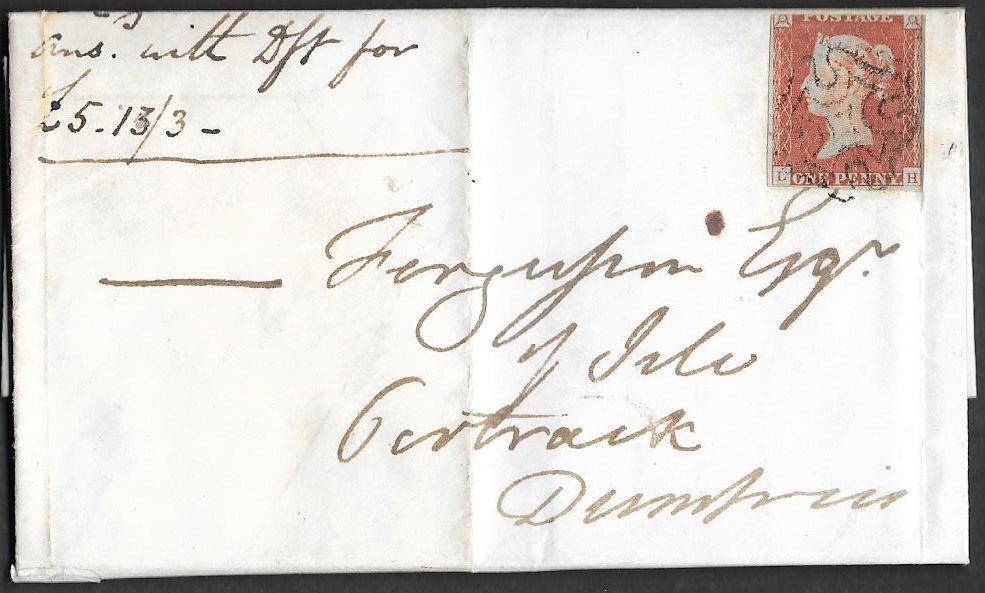 ans.d with Dft for
£5.13/3 -
POSTAGE
ONE PENNY
L H
Fergusson Esqr.
of Isle
Portrack
Dumfries